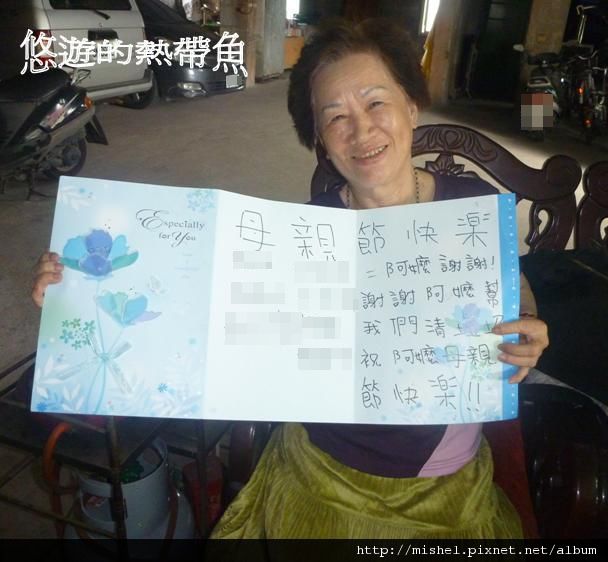 悠遊的熱帶魚
Especially
for You
母親節快楽
=阿嬤謝謝!
謝謝阿嬤幫
我們清
祝阿嬤母親
節快楽!!
http://mishel.pixnet.net/album